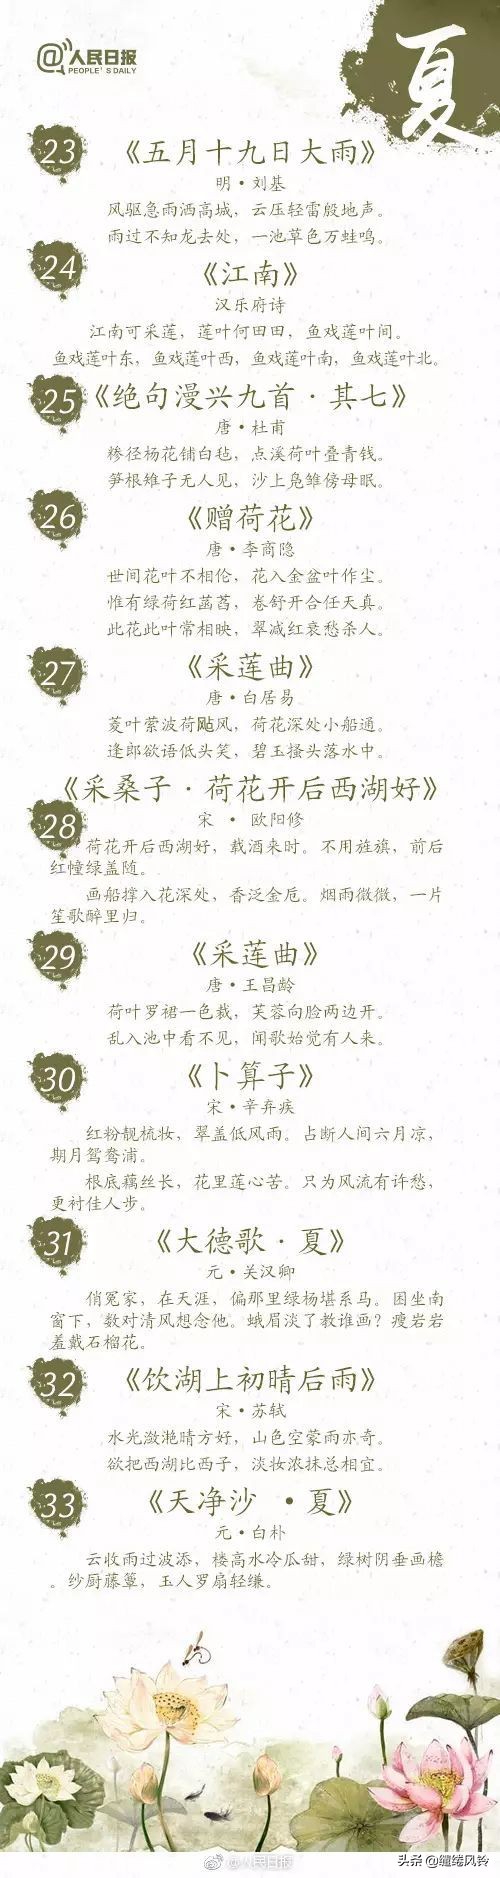 @人民日报
PEOPLE'S DAILY
夏
23
《五月十九日大雨》
明·刘基
风驱急雨洒高城，云压轻雷殷地声。
雨过不知龙去处，一池草色万蛙鸣。
24
《江南》
汉乐府诗
江南可采莲，莲叶何田田，鱼戏莲叶间。
鱼戏莲叶东，鱼戏莲叶西，鱼戏莲叶南，鱼戏莲叶北。
25
《绝句漫兴九首·其七》
唐·杜甫
糁径杨花铺白毡，点溪荷叶叠青钱。
笋根雉子无人见，沙上凫雏傍母眠。
26
《赠荷花》
唐·李商隐
世间花叶不相伦，花入金盆叶作尘。
惟有绿荷红菡萏，卷舒开合任天真。
此花此叶常相映，翠减红衰愁杀人。
27
《采莲曲》
唐·白居易
菱叶萦波荷飐风，荷花深处小船通。
逢郎欲语低头笑，碧玉搔头落水中。
《采桑子·荷花开后西湖好》
28
宋 · 欧阳修
荷花开后西湖好，载酒来时。不用旌旗，前后
红幢绿盖随。
画船撑入花深处，香泛金卮。烟雨微微，一片
笙歌醉里归。
29
《采莲曲》
唐·王昌龄
荷叶罗裙一色裁，芙蓉向脸两边开。
乱入池中看不见，闻歌始觉有人来。
30
《卜算子》
宋·辛弃疾
红粉靓梳妆，翠盖低风雨。占断人间六月凉，
期月鸳鸯浦。
根底藕丝长，花里莲心苦。只为风流有许愁，
更衬佳人步。
31
《大德歌·夏》
元·关汉卿
俏冤家，在天涯，偏那里绿杨堪系马。困坐南
窗下，数对清风想念他。蛾眉淡了教谁画？瘦岩岩
羞戴石榴花。
32
《饮湖上初晴后雨》
宋·苏轼
水光潋滟晴方好，山色空蒙雨亦奇。
欲把西湖比西子，淡妆浓抹总相宜。
33
《天净沙 ·夏》
元·白朴
云收雨过波添，楼高水冷瓜甜，绿树阴垂画檐
。纱厨藤簟，玉人罗扇轻缣。
@人民日报
头条 @缱绻风铃